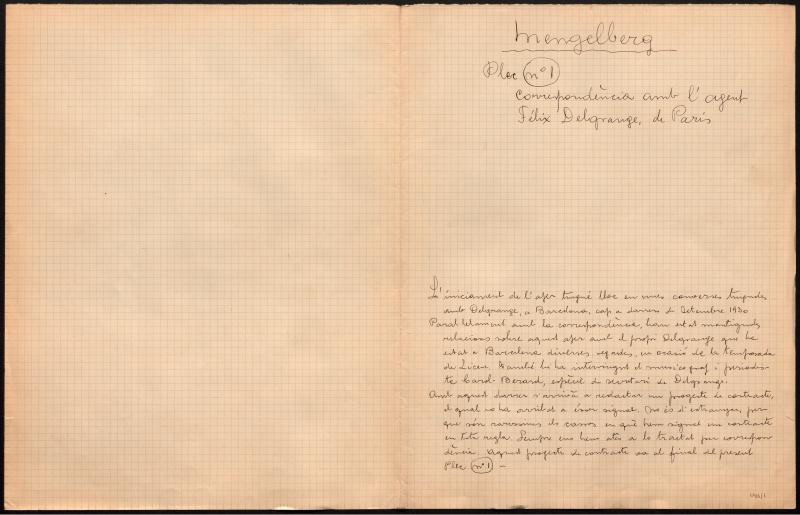 Mengelberg
Plec nº 1
correspondència amb l'agent
Félix Delgrange, de París
L'iniciament de l'afer tingué lloc en unes converses tingudes
amb Delgrange, a Barcelona, cap a darrers de Setembre 1930
Paral·lelament amb la correspondència, hem estat mantinguts
relacions sobre aquest afer amb el propi Delgrange que ha
estat a Barcelona diverses vegades, en ocasió de la temporada
de Liceu. També hi ha intervingut el musicògraf i periodis-
ta Carol-Berard, espècie de secretari de Delgrange.
Amb aquest darrer s'arrivà a redactar un projecte de contracte,
el qual no ha arribat a ésser signat. No és d'estranyar, per
que són raríssims els casos en què hem signat un contracte
en tota regla. Sempre ens hem atès a lo tractat per correspon
dència. Aquest projecte de contracte va al final del present
Plec nº 1 -